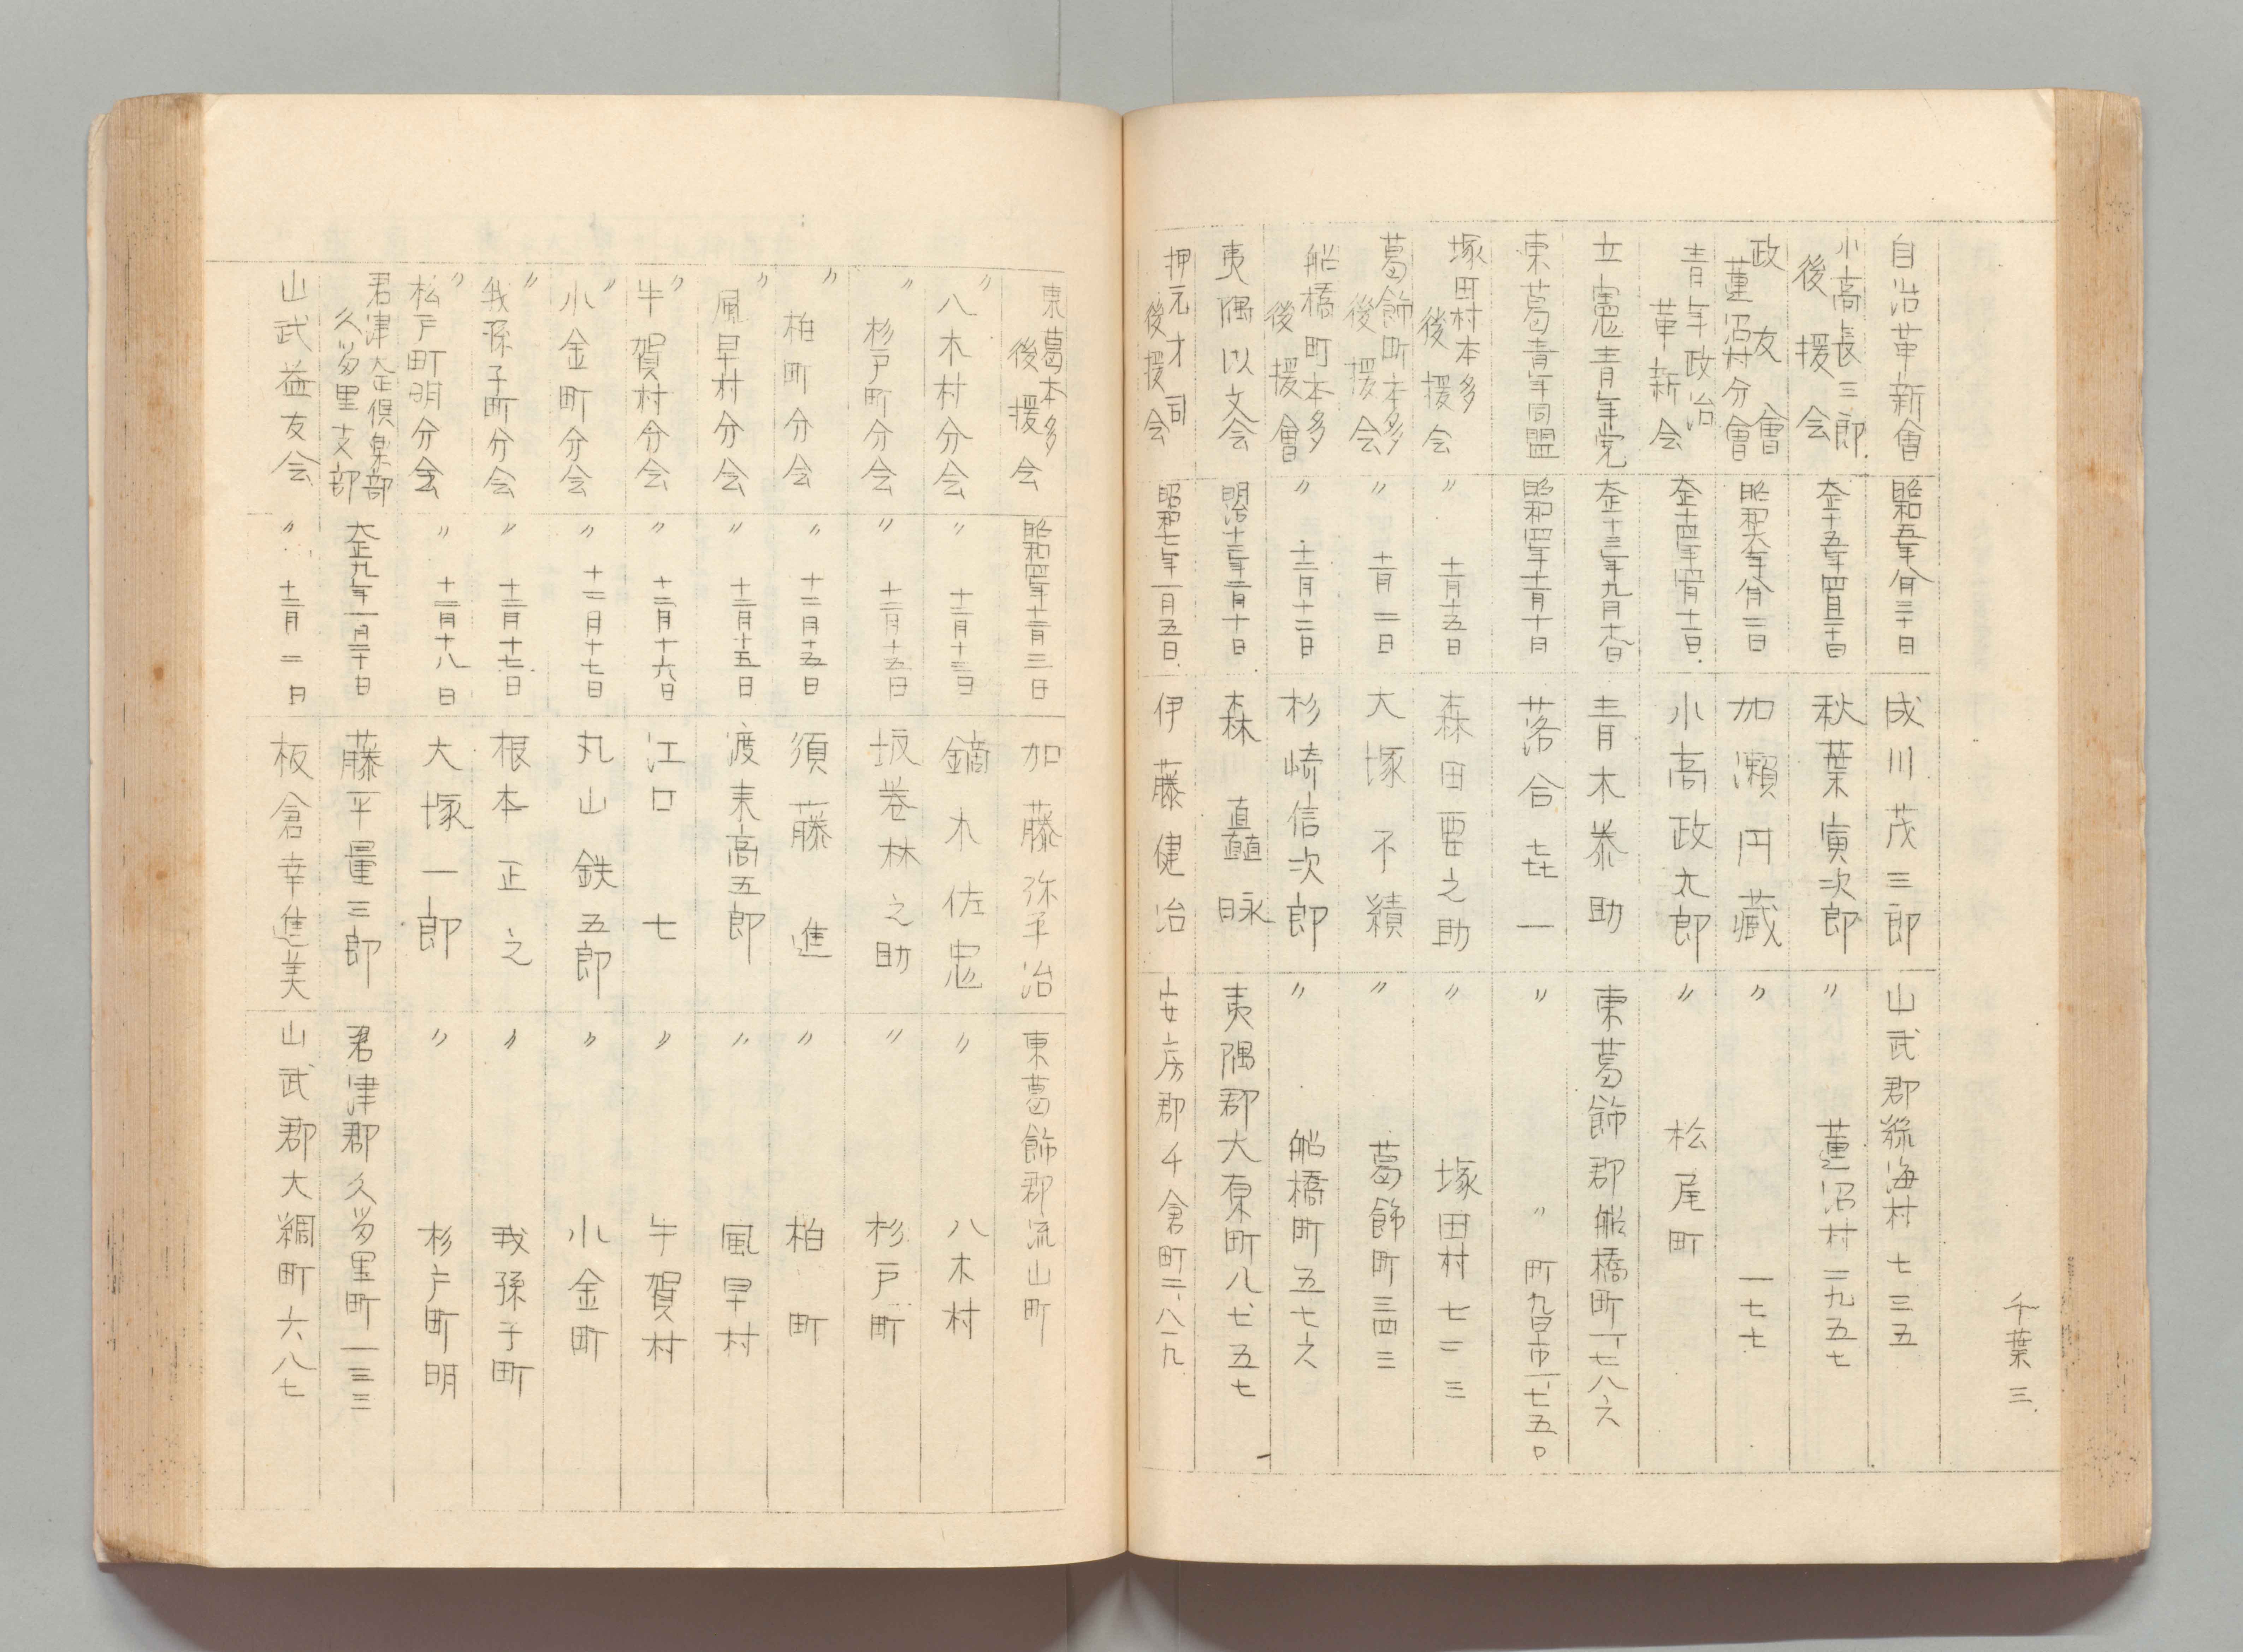 千葉 三
自治革新會 昭和五年八月三十日 成川茂三郎 山武郡緑海村七三五
小高長三郎後援会 大正十五年四月二十日 秋葉寅次郎 〃 蓮沼村二九五七
政友會蓮沼村分會 昭和六年八月一日 加瀬円藏 〃 一七七
青年政治革新会 大正十四年四月十一日 小高政太郎 〃 松尾町
立憲青年党 大正十三年九月十八日 青木泰助 東葛飾郡船橋町一、七八六
東葛青年同盟 昭和四年十一月十日 落合㐂一 〃 〃町九日市一、七五〇
塚田村本多後援会 〃 十一月十五日 森田要之助 〃 塚田村七二三
葛飾町本多後援会 〃 十一月二日 大塚不績 〃 葛飾町三四三
船橋町本多後援會 〃 十二月十二日 杉崎信次郎 〃 船橋町五七六
夷隅以文会 明治十三年二月十日 森 直詠 夷隅郡大原町八七五七
押元才司後援会 昭和七年一月五日 伊藤健治 安房郡千倉町二、八一九
東葛本多後援会 昭和四年十二月三日 加藤弥平治 東葛飾郡流山町
〃 八木村分会 〃 十二月十三日 鏑木佐忠 〃 八木村
〃 杉戸町分会 〃 十二月十五日 坂巻林之助 〃 杉戸町
〃 柏町分会 〃 十二月十五日 須藤 進 〃 柏町
〃 風早村分会 〃 十二月十五日 渡来高五郎 〃 風早村
〃 牛賀村分会 〃 十二月十六日 江口 七 〃 牛賀村
〃 小金町分会 〃 十二月十七日 丸山鉄五郎 〃 小金町
〃 我孫子町分会 〃 十二月十七日 根本正之 〃 我孫子町
〃 松戸町明分会 〃 十二月十八日 大塚一郎 〃 杉戸町明
君津大正倶楽部久留里支部 大正九年一月二十日 藤平量三郎 君津郡久留里町一三三
山武益友会 〃 十二月二日 板倉幸進美 山武郡大網町六八七